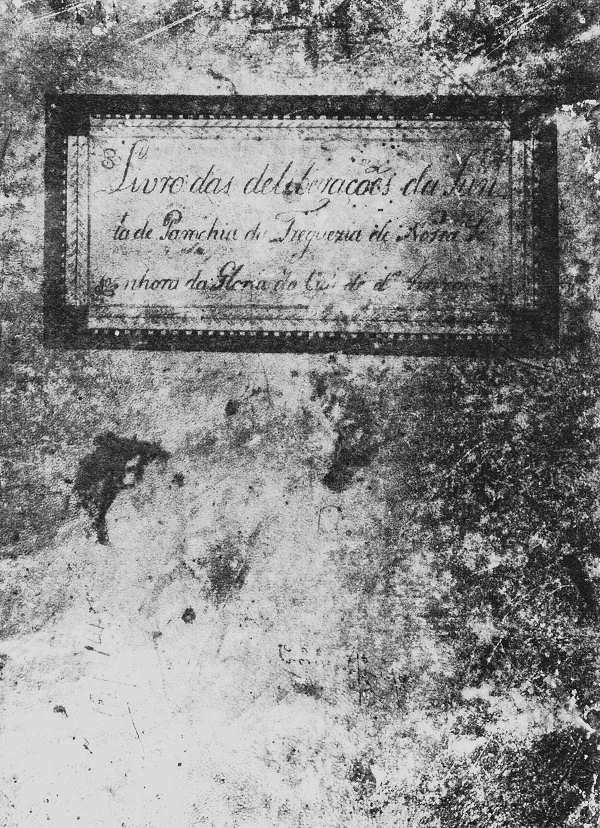 Livro das deliberações da Jun-
ta de Parochia da Freguezia de Nossa S.
enhora da Gloria do